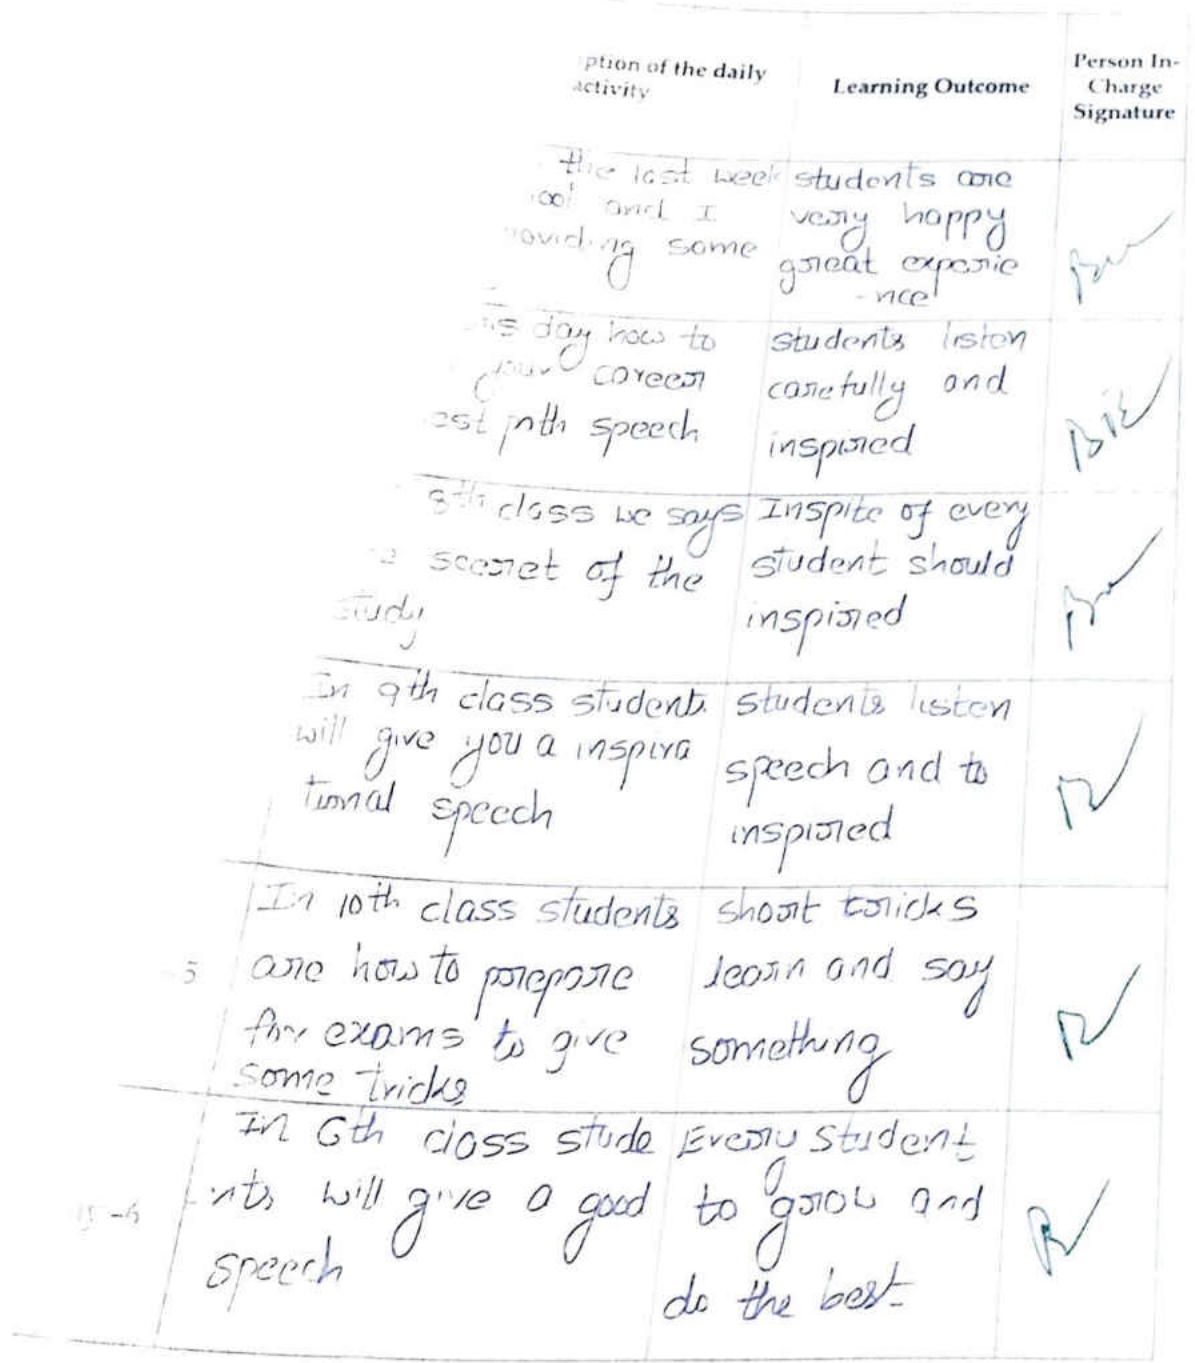 ption of the daily
activity
Learning Outcome
Person In-
Charge
Signature
the last week
ool and I
oviding some
students are
very happy
great experie
-nce
is day how to
your career
est path speech
students listen
carefully and
inspired
8th class we says
secret of the
study
Inspite of every
student should
inspired
In 9th class students
will give you a inspira
tional speech
students listen
speech and to
inspired
-5
In 10th class students
are how to prepare
for exams to give
some tricks
short tricks
learn and say
something
-6
In 6th class stude
-nts will give a good
speech
Every student
to grow and
do the best.